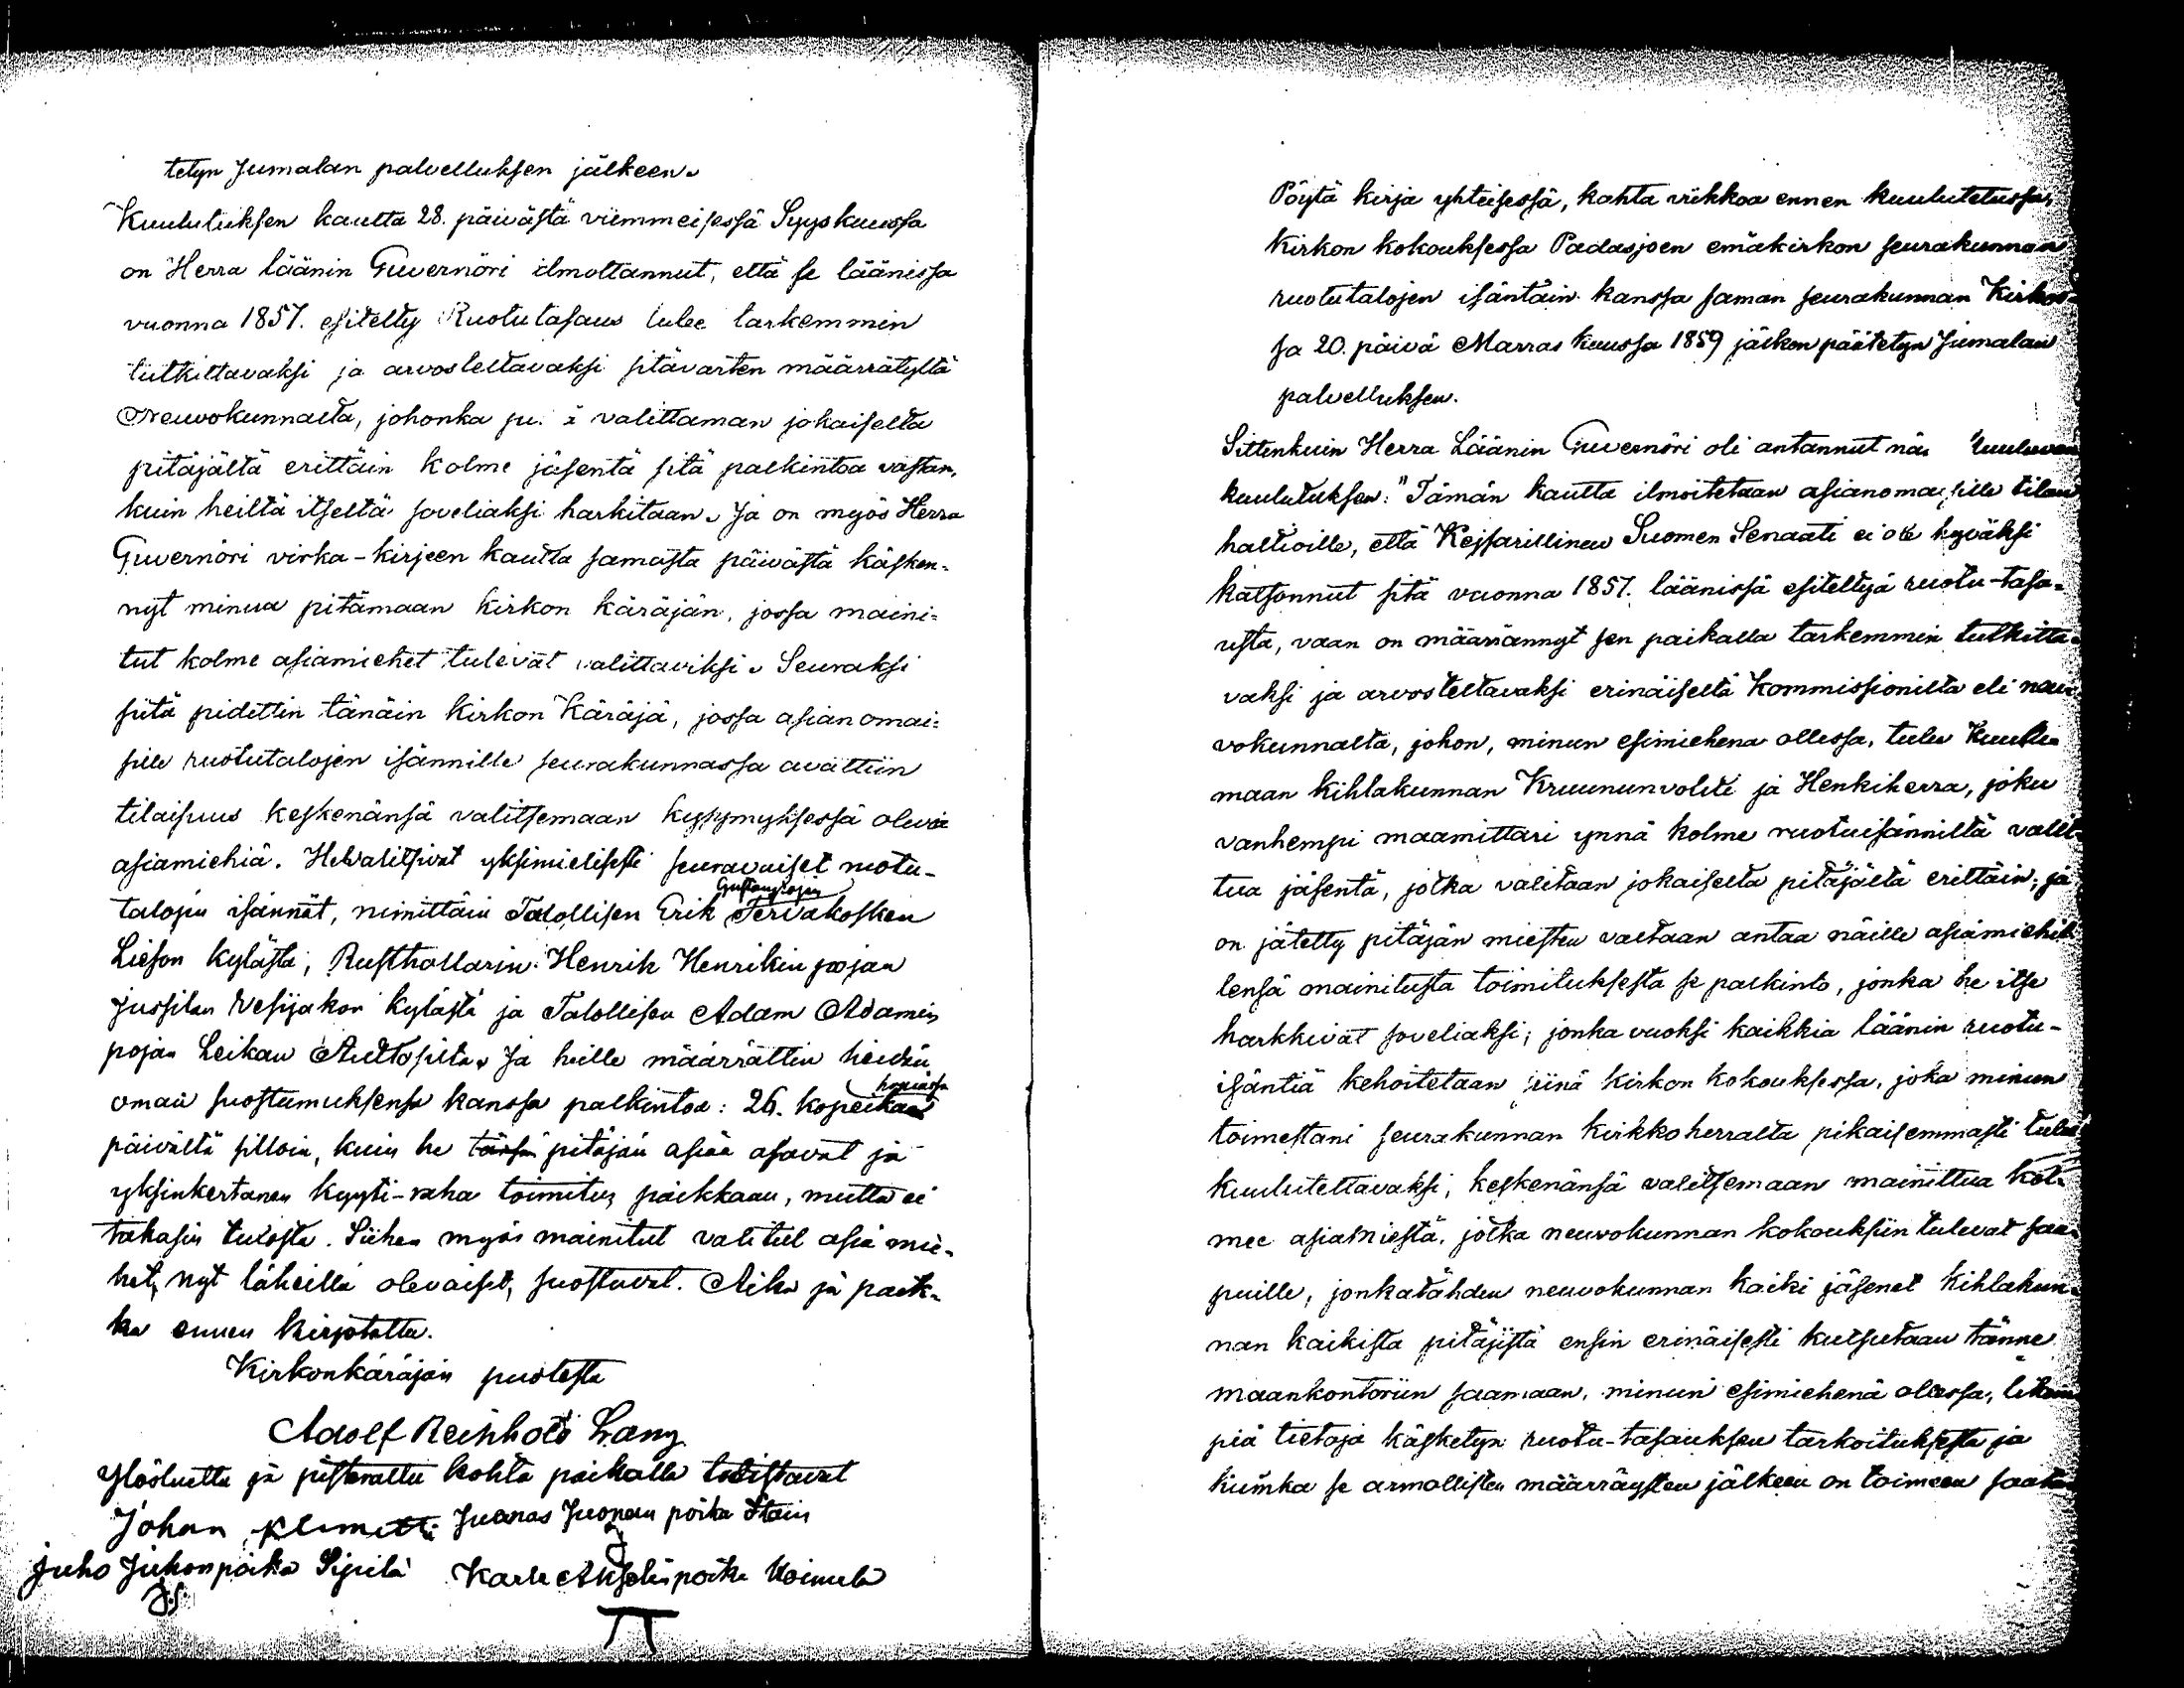 tetyn Jumalan palvelluksen jälkeen.
Kuulutuksen kautta 28. päivästä viimmeisessä Syyskuussa
on Herra läänin Guvernöri ilmottannut, että se läänissa
vuonna 1857. esitelty Ruotutasaus tulee tarkemmin
tutkittavaksi ja arvosteltavaksi sitävarten määrrätyltä
Neuvokunnalta, johonka valittaman jokaiselta
pitäjältä erittäin kolme jäsentä sitä palkintoa vastan,
kuin heiltä itseltä soveliaksi harkitaan. Ja on myös Herra
Guvernöri virka-kirjeen kautta samasta päivästä käsken-
nyt minua pitämaan kirkon käräjän, jossa maini-
tut kolme asiamiehet tulevat valittaviksi. Seuraksi
siitä pidettin tänäin kirkon Käräjä, jossa asianomai-
sille ruotutalojen isännille seurakunnassa avattiin
tilaisuus keskenänsä valitsemaan kysymyksessä olevia
asiamiehiä. He valitsivat yksimielisesti seuravaiset ruotu-
talojen isännät, nimittäin Talollisen Erik Gustavpojan Tervakosken
Lieson kylästa, Rusthollarin Henrik Henrikin pojan
Jussilan Vesijakon kylästä ja Talollisen Adam Adamin
pojan Seikau Auttosilta. Ja heille määrrättin heidän
oman suostumuksensa kanssa palkintoa: 26. kopeikaa hopeassa
päivältä silloin, kuin he tässä pitäjän asiaa asavat ja
yksinkertanen kyyti-raha toimitus paikkaan, mutta ei
takasin tulosta. Siihen myös mainitut valitut asia mie-
het, nyt läheillä olevaiset, suostuvat. Aika ja paik-
ka ennen kirjotettu.
Kirkonkäräjän puolesta
Adolf Reinhold Lang
Ylösluettu ja justerattu kohta paikalla todistavat
Johan Klemetti Juanas Juonan poika Stain
Juho Juhonpoika Sipilä Karle Akselinpoika Koimula
JS.
Pöytä kirja yhteisessä, kahta viikkoa ennen kuulutetussa,
Kirkon kokouksessa Padasjoen emäkirkon seurakunnan
ruotutalojen isäntäin kanssa saman seurakunnan Kirkos-
sa 20. päivä Marras kuussa 1859 jälken päätetyn Jumalan
palvelluksen.
Sittenkuin Herra Läänin Guvernöri oli antannut näi kuuluvan
kuulutuksen: "Tämän kautta ilmoitetaan asianomaisille tilan
haltioille, että Kejsarillinen Suomen Senaati ei ole hyväksi
katsonnut sitä vuonna 1857. läänissä esiteltyä ruotu-tasa-
usta, vaan on määrännyt sen paikalla tarkemmin tutkitta-
vaksi ja arvosteltavaksi erinäiseltä Kommissionilta eli neu-
vokunnalta, johon, minun esimiehena ollessa, tulee kuulu-
maan kihlakunnan Kruununvolti ja Henkiherra, joku
vanhempi maamittari ynnä kolme ruotuisänniltä valit-
tua jäsentä, jotka valitaan jokaiselta pitäjältä erittäin; ja
on jätetty pitäjän miesten valtaan antaa näille asiamiehil-
lensä mainitusta toimituksesta se palkinto, jonka he itse
harkkivat soveliaksi; jonka vuoksi kaikkia läänin ruotu-
isäntiä kehoitetaan siinä kirkon kokouksessa, joka minun
toimestani seurakunnan kirkkoherralta pikaisemmasti tulee
kuulutettavaksi, keskenänsä valitsemaan mainittua kol-
mee asiamiestä, jotka neuvokunnan kokouksiin tulevat saa-
puille, jonkatähden neuvokunnan kaiki jäsenet kihlakun-
nan kaikista pitäjistä ensin erinäisesti kutsutaan tänne
maankontoriin saamaan, minun esimiehenä ollessa, likem-
piä tietoja käsketyn ruotu-tasauksen tarkoituksesta ja
kuinka se armollisten määrräysten jälkeen on toimeen saata-